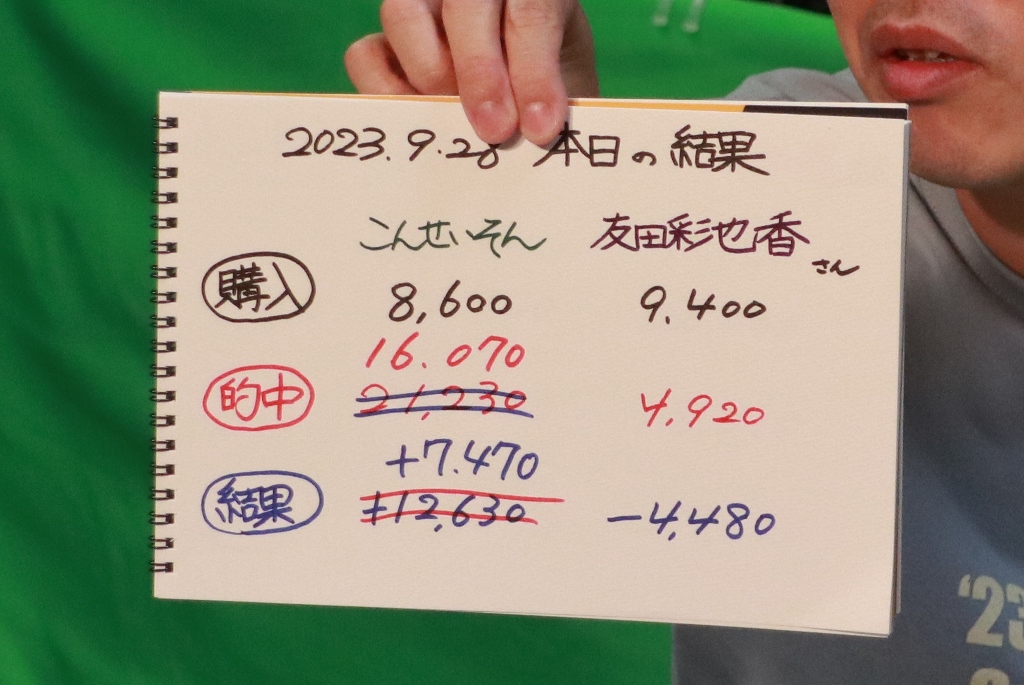 2023.9.28 本日の結果
こんせいそん 友田彩也香さん
購入 8,600 9.400
16.070
的中 21,230 4,920
+7.470
結果 +12,630 -4,480
'23